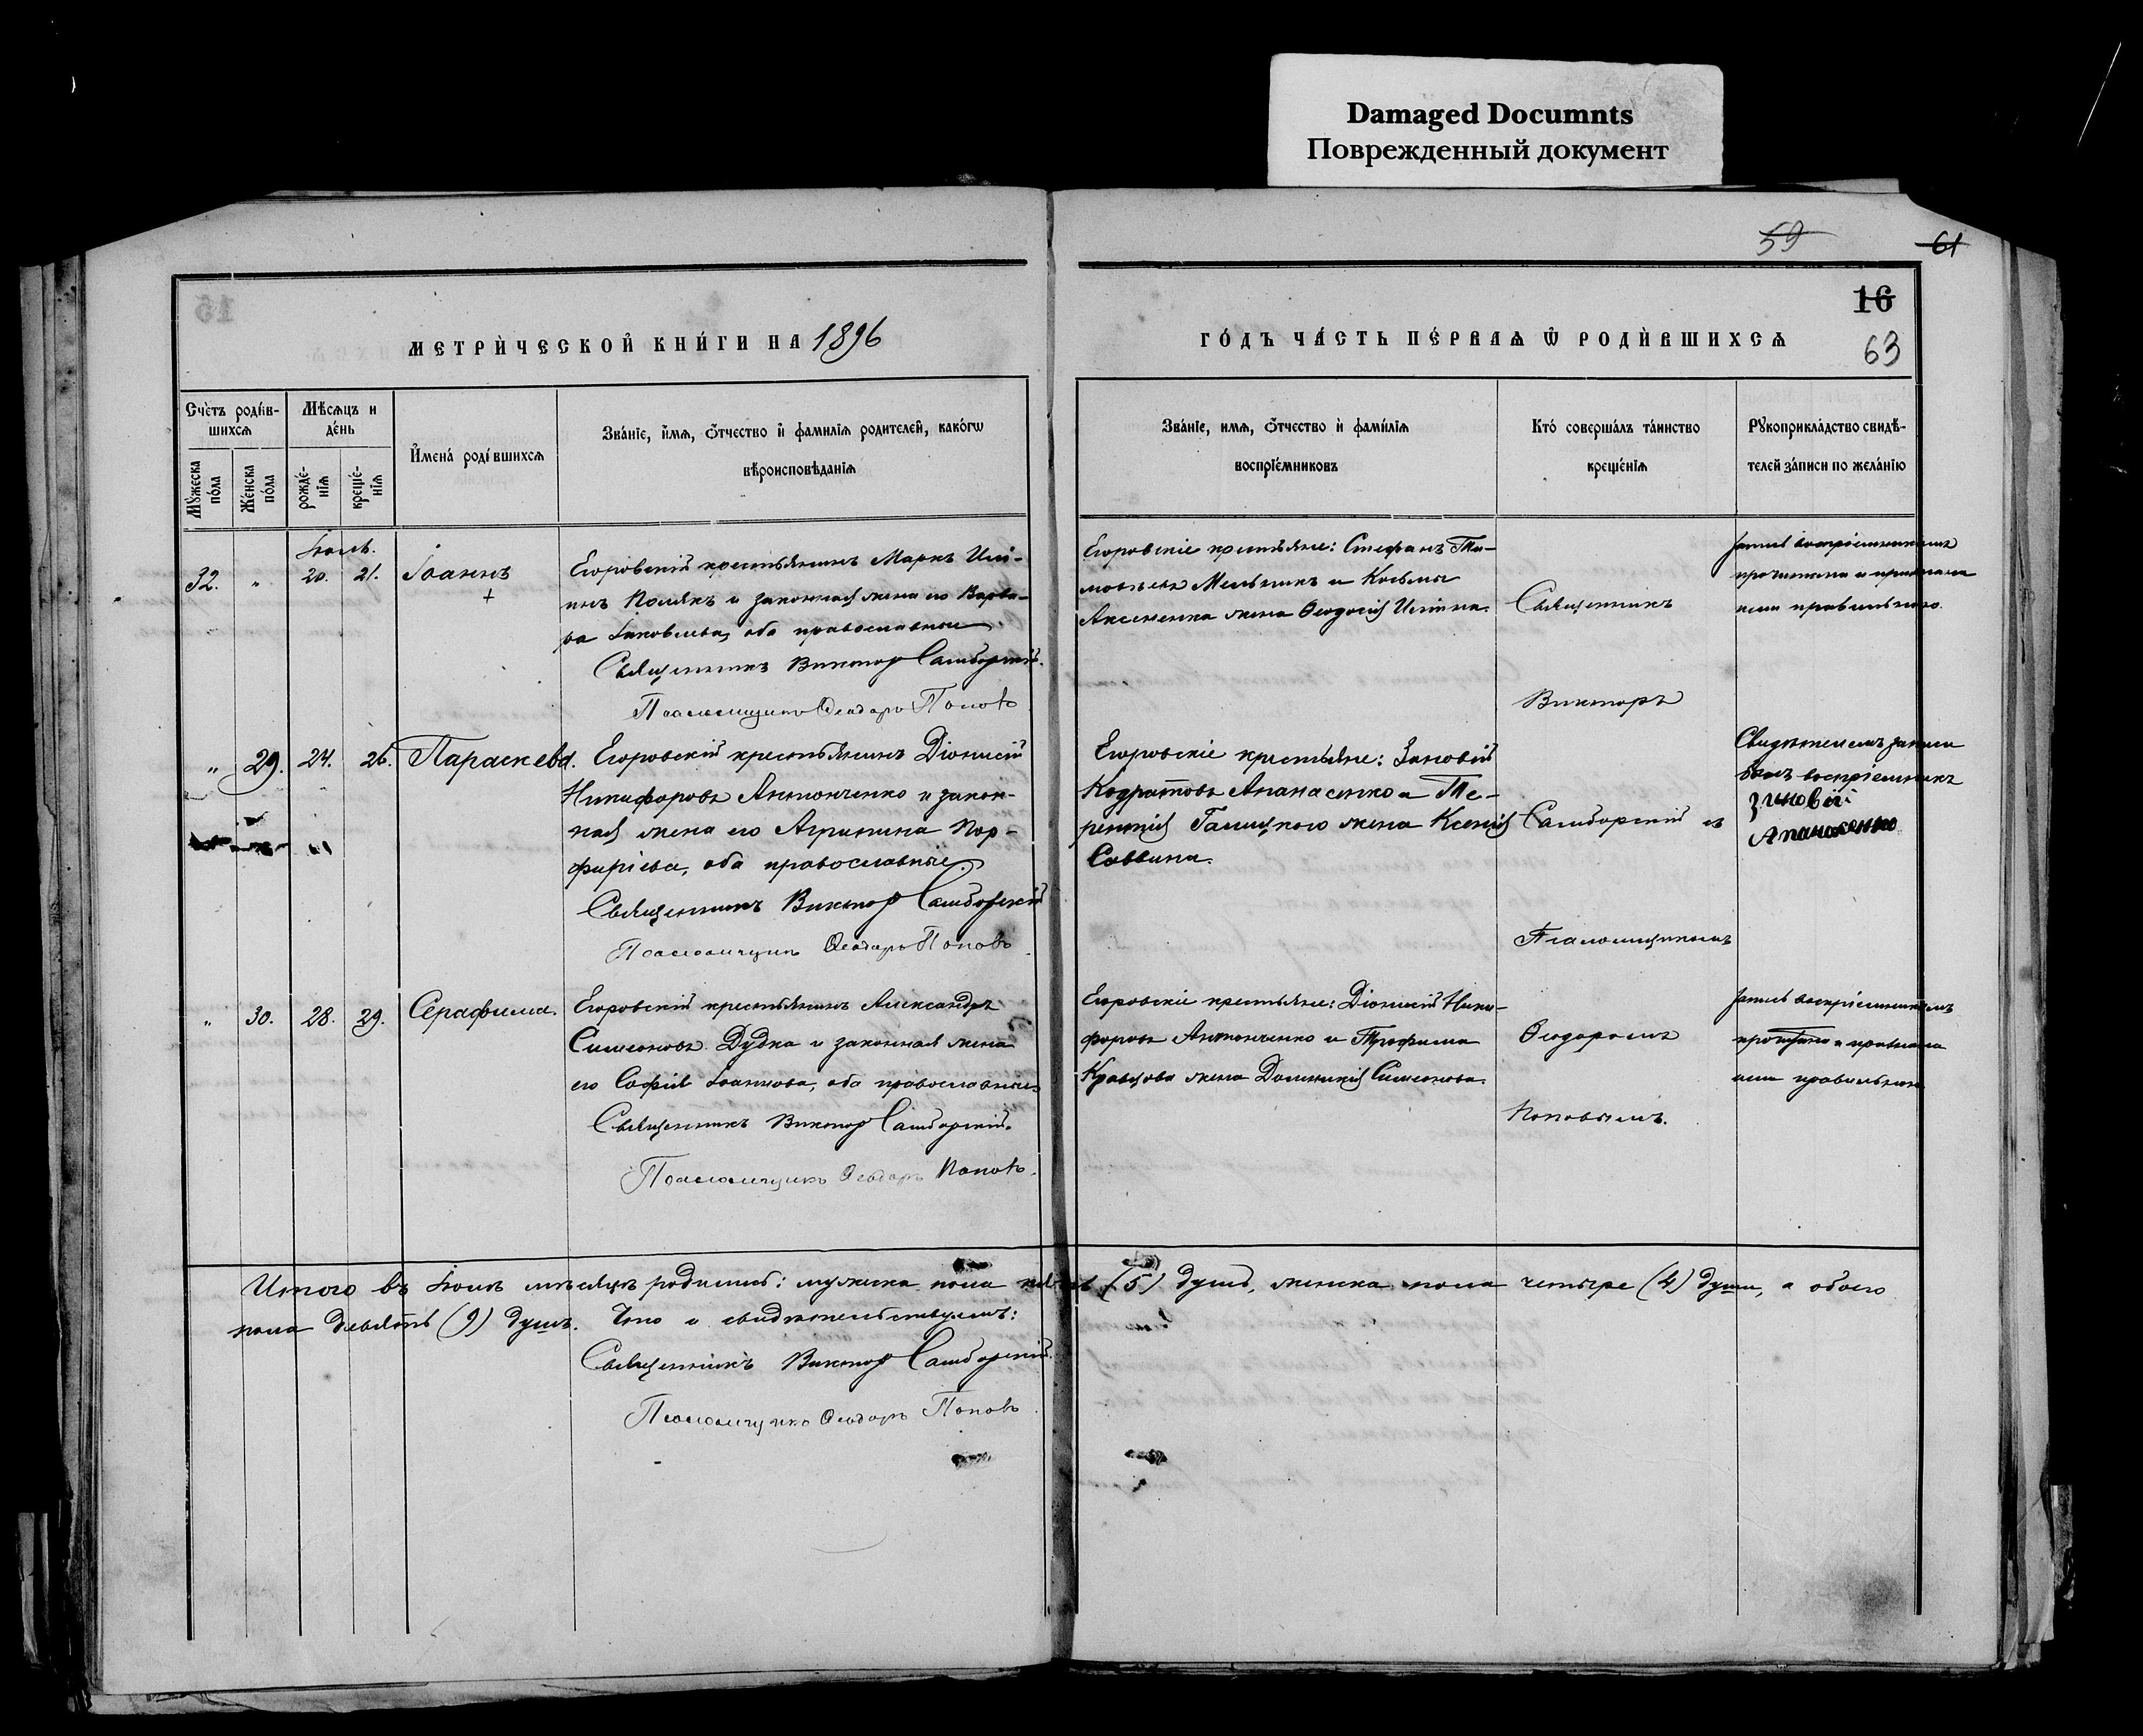 Damaged Documnts
Поврежденный документ
59
61
16
15
63
МЕТРИ́ЧЕСКОЙ КНИ́ГИ НА 1896
ГО́ДЪ ЧА́СТЬ ПЕ́РВАѦ Ѡ҆ РОДИ́ВШИХСѦ
Счѐтъ роди́в-
шихсѧ
Мѣ́сѧцъ и
де́нь
И҆мена́ роди́вшихсѧ
Зва́нїе, и҆́мѧ, ѻ҆́тчество и҆ фами́лїѧ родителей, како́гѡ
вѣроисповѣ́данїѧ
Мꙋ́жеска
по́ла
Же́нска
по́ла
рожде́-
нїѧ
креще́-
нїѧ
Зва́нїе, имѧ, ѻ҆́тчество и҆ фами́лїѧ
воспрїе́мниковъ
Кто̀ соверша́лъ та́инство
креще́нїѧ
Рꙋкоприкла́дство свидѣ́-
телей за́писи по жела́нїю
Іюль.
32. " 20. 21. Іоаннъ
+
Егоровскій крестьянинъ Маркъ Илі-
инъ Полякъ и законная жена его Варва-
ра Іаковлева, оба православные.
Священникъ Викторъ Самборскій.
Псаломщикъ Ѳеодоръ Поповъ
Егоровскіе крестьяне: Стефанъ Ти-
моѳеевъ Мельникъ и Косьмы
Аксененка жена Ѳеодосія Иліина.
Священникъ
Викторъ
Самборскій съ
Псаломщикомъ
Ѳеодоромъ
Поповымъ.
Запись воспріемникамъ
прочитана и признана
ими правильною.
" 29. 24. 26. Параскева.
Егоровскій крестьянинъ Діонисій
Никифоровъ Антонченко и закон-
ная жена его Агрипина Пор-
фиріева, оба православные.
Священникъ Викторъ Самборскій
Псаломщикъ Ѳеодоръ Поповъ
Егоровскіе крестьяне: Зиновій
Кодратовъ Апанасенко и Те-
рентія Галицкого жена Ксенія
Саввина.
Свидѣтелемъ записи
былъ воспріемникъ
Зиновій
Апанасенко
" 30. 28. 29. Серафима.
Егоровскій крестьянинъ Александръ
Симеоновъ Дудка и законная жена
его Софія Іоаннова, оба православные
Священникъ Викторъ Самборскій.
Псаломщикъ Ѳеодоръ Поповъ.
Егоровскіе крестьяне: Діонисій Ники-
форовъ Антонченко и Трофима
Кравцова жена Домникія Симеонова.
Запись воспріемникамъ
прочитана и признана
ими правильною
Итого въ Іюлѣ мѣсяцѣ родилось: мужеска пола пять (5) душъ, женска пола четыре (4) души, а обоего
пола девять (9) душъ. Что и свидѣтельствуемъ:
Священникъ Викторъ Самборскій.
Псаломщикъ Ѳеодоръ Поповъ